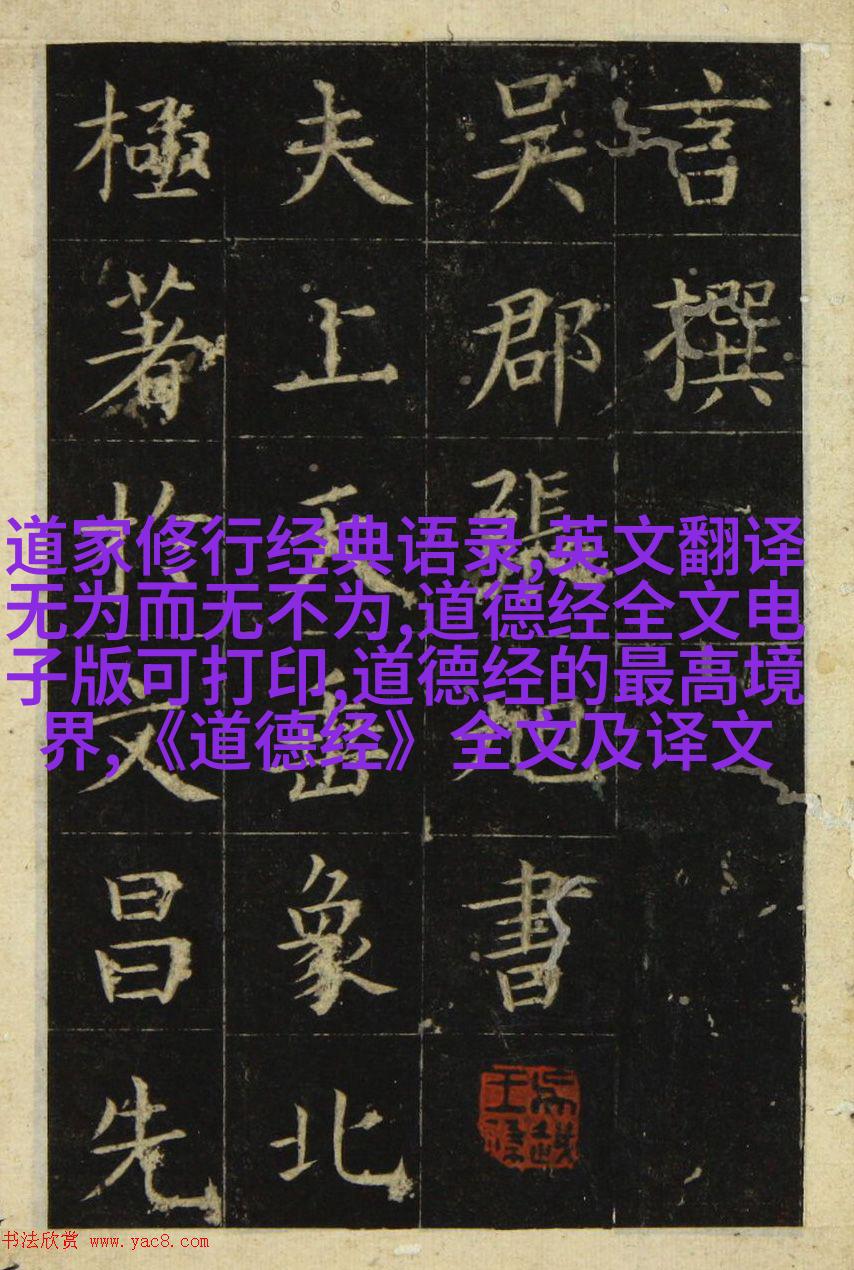 言撰
吴郡張旭書
夫上天垂象北
極著於文昌先
道家修行经典语录,英文翻译
无为而无不为,道德经全文电
子版可打印,道德经的最高境
界,《道德经》全文及译文
书法欣赏 www.yac8.com